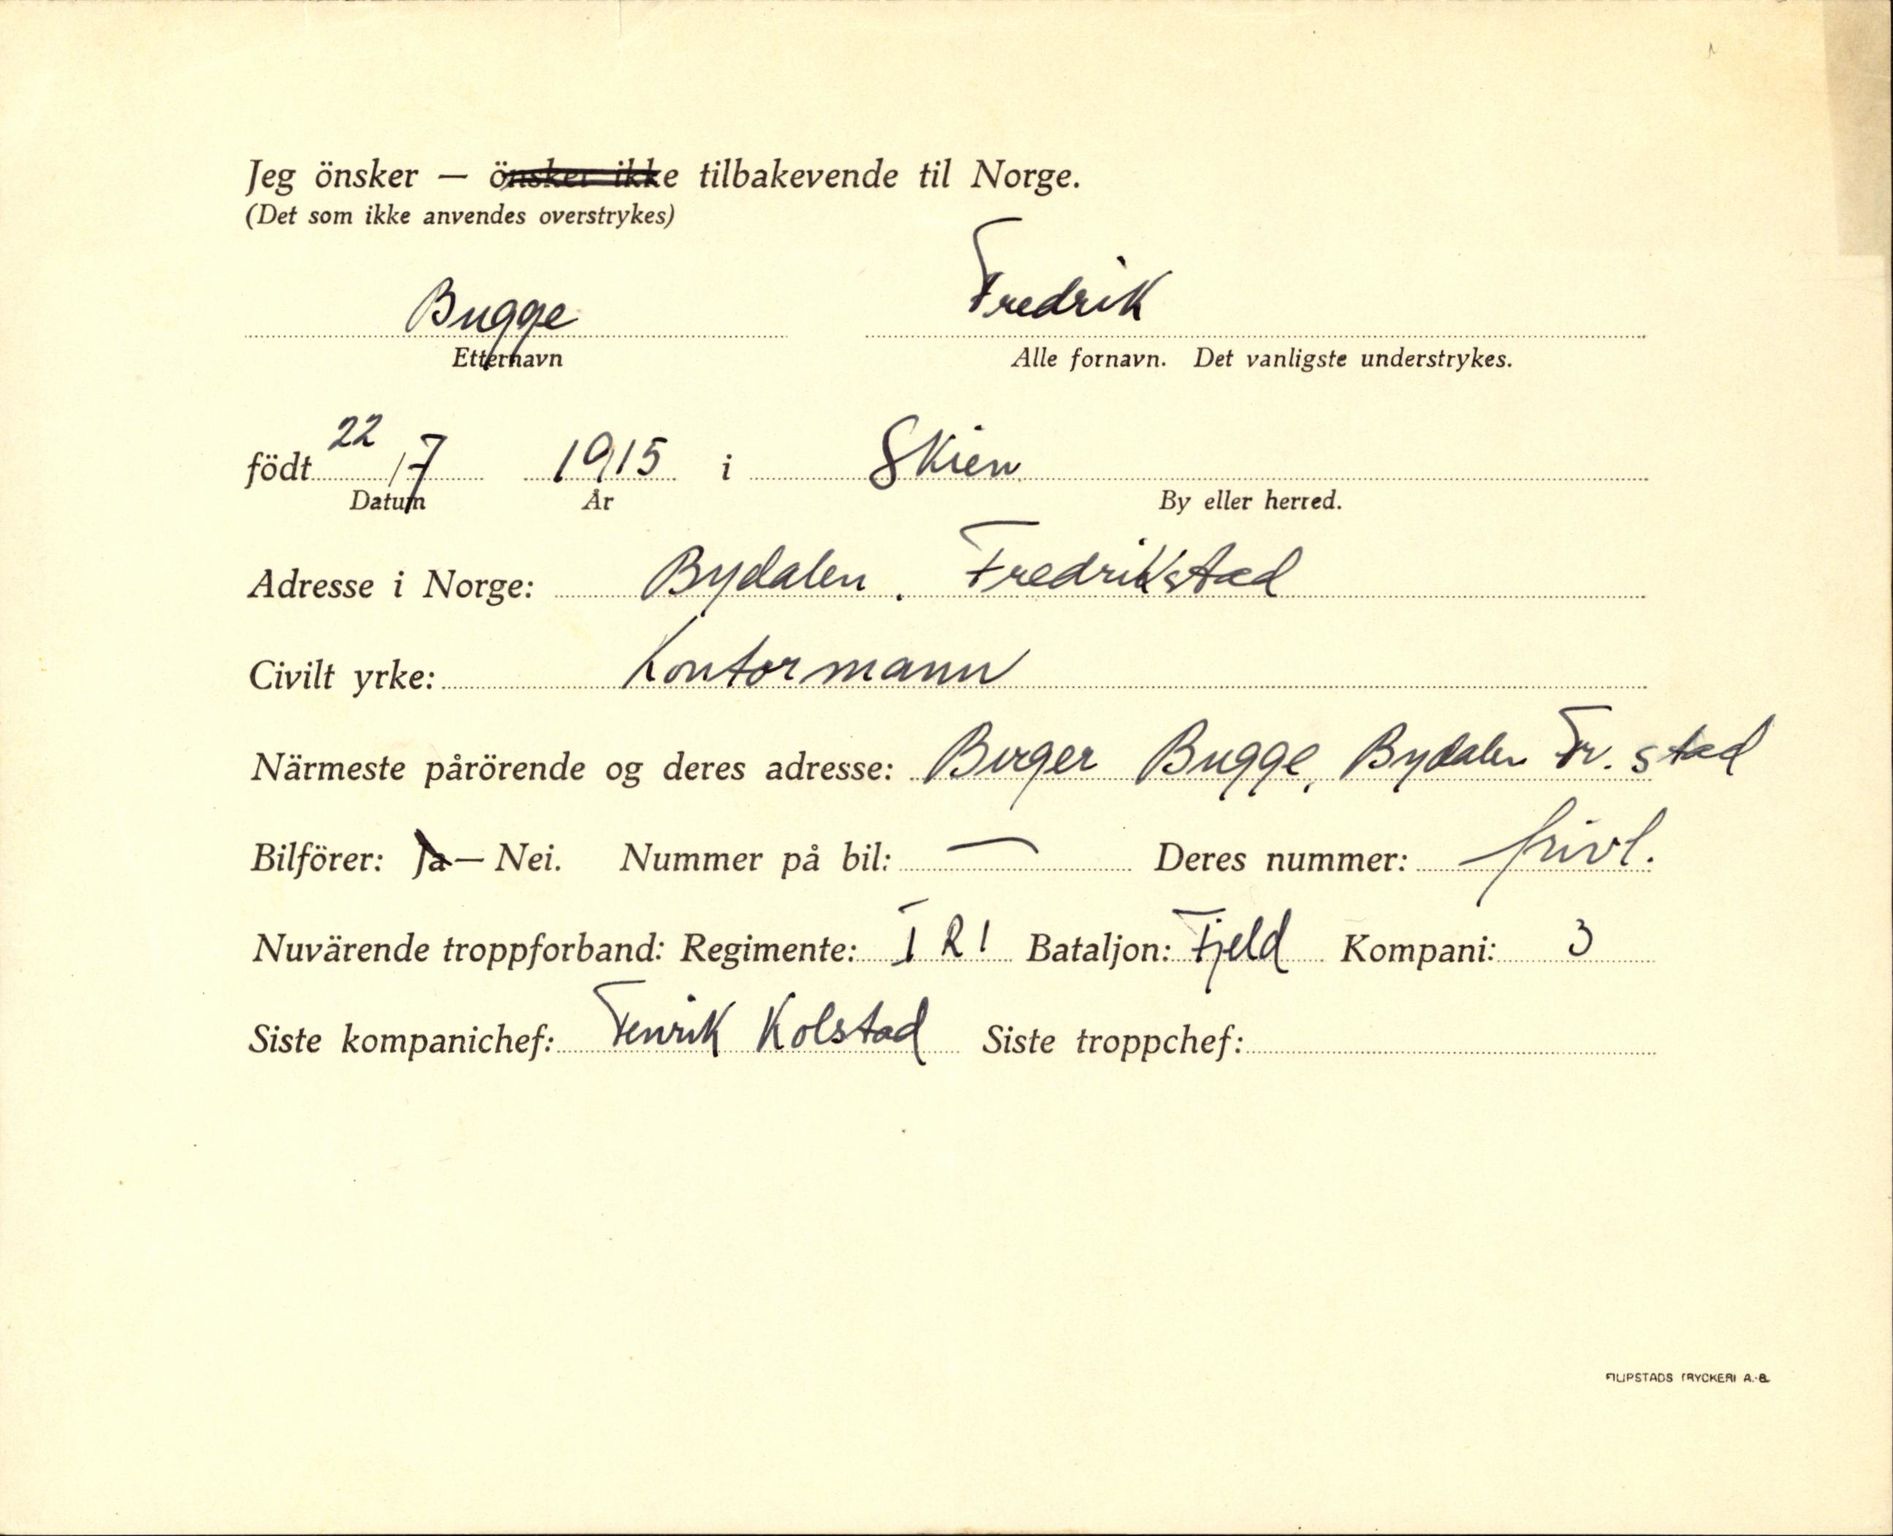 Jeg önsker — önsker ikke tilbakevende til Norge.
(Det som ikke anvendes overstrykes)
Bugge Fredrik
Etternavn Alle fornavn. Det vanligste understrykes.
födt 22/7 1915 i Skien
Datum År By eller herred.
Adresse i Norge: Bydalen, Fredrikstad
Civilt yrke: Kontormann
Närmeste pårörende og deres adresse: Birger Bugge, Bydalen Fr.stad
Bilförer: Ja — Nei. Nummer på bil: — Deres nummer: frivl.
Nuvärende troppforband: Regimente: I R 1 Bataljon: Fjeld Kompani: 3
Siste kompanichef: Fenrik Kolstad Siste troppchef:
FILIPSTADS TRYCKERI A.-B.